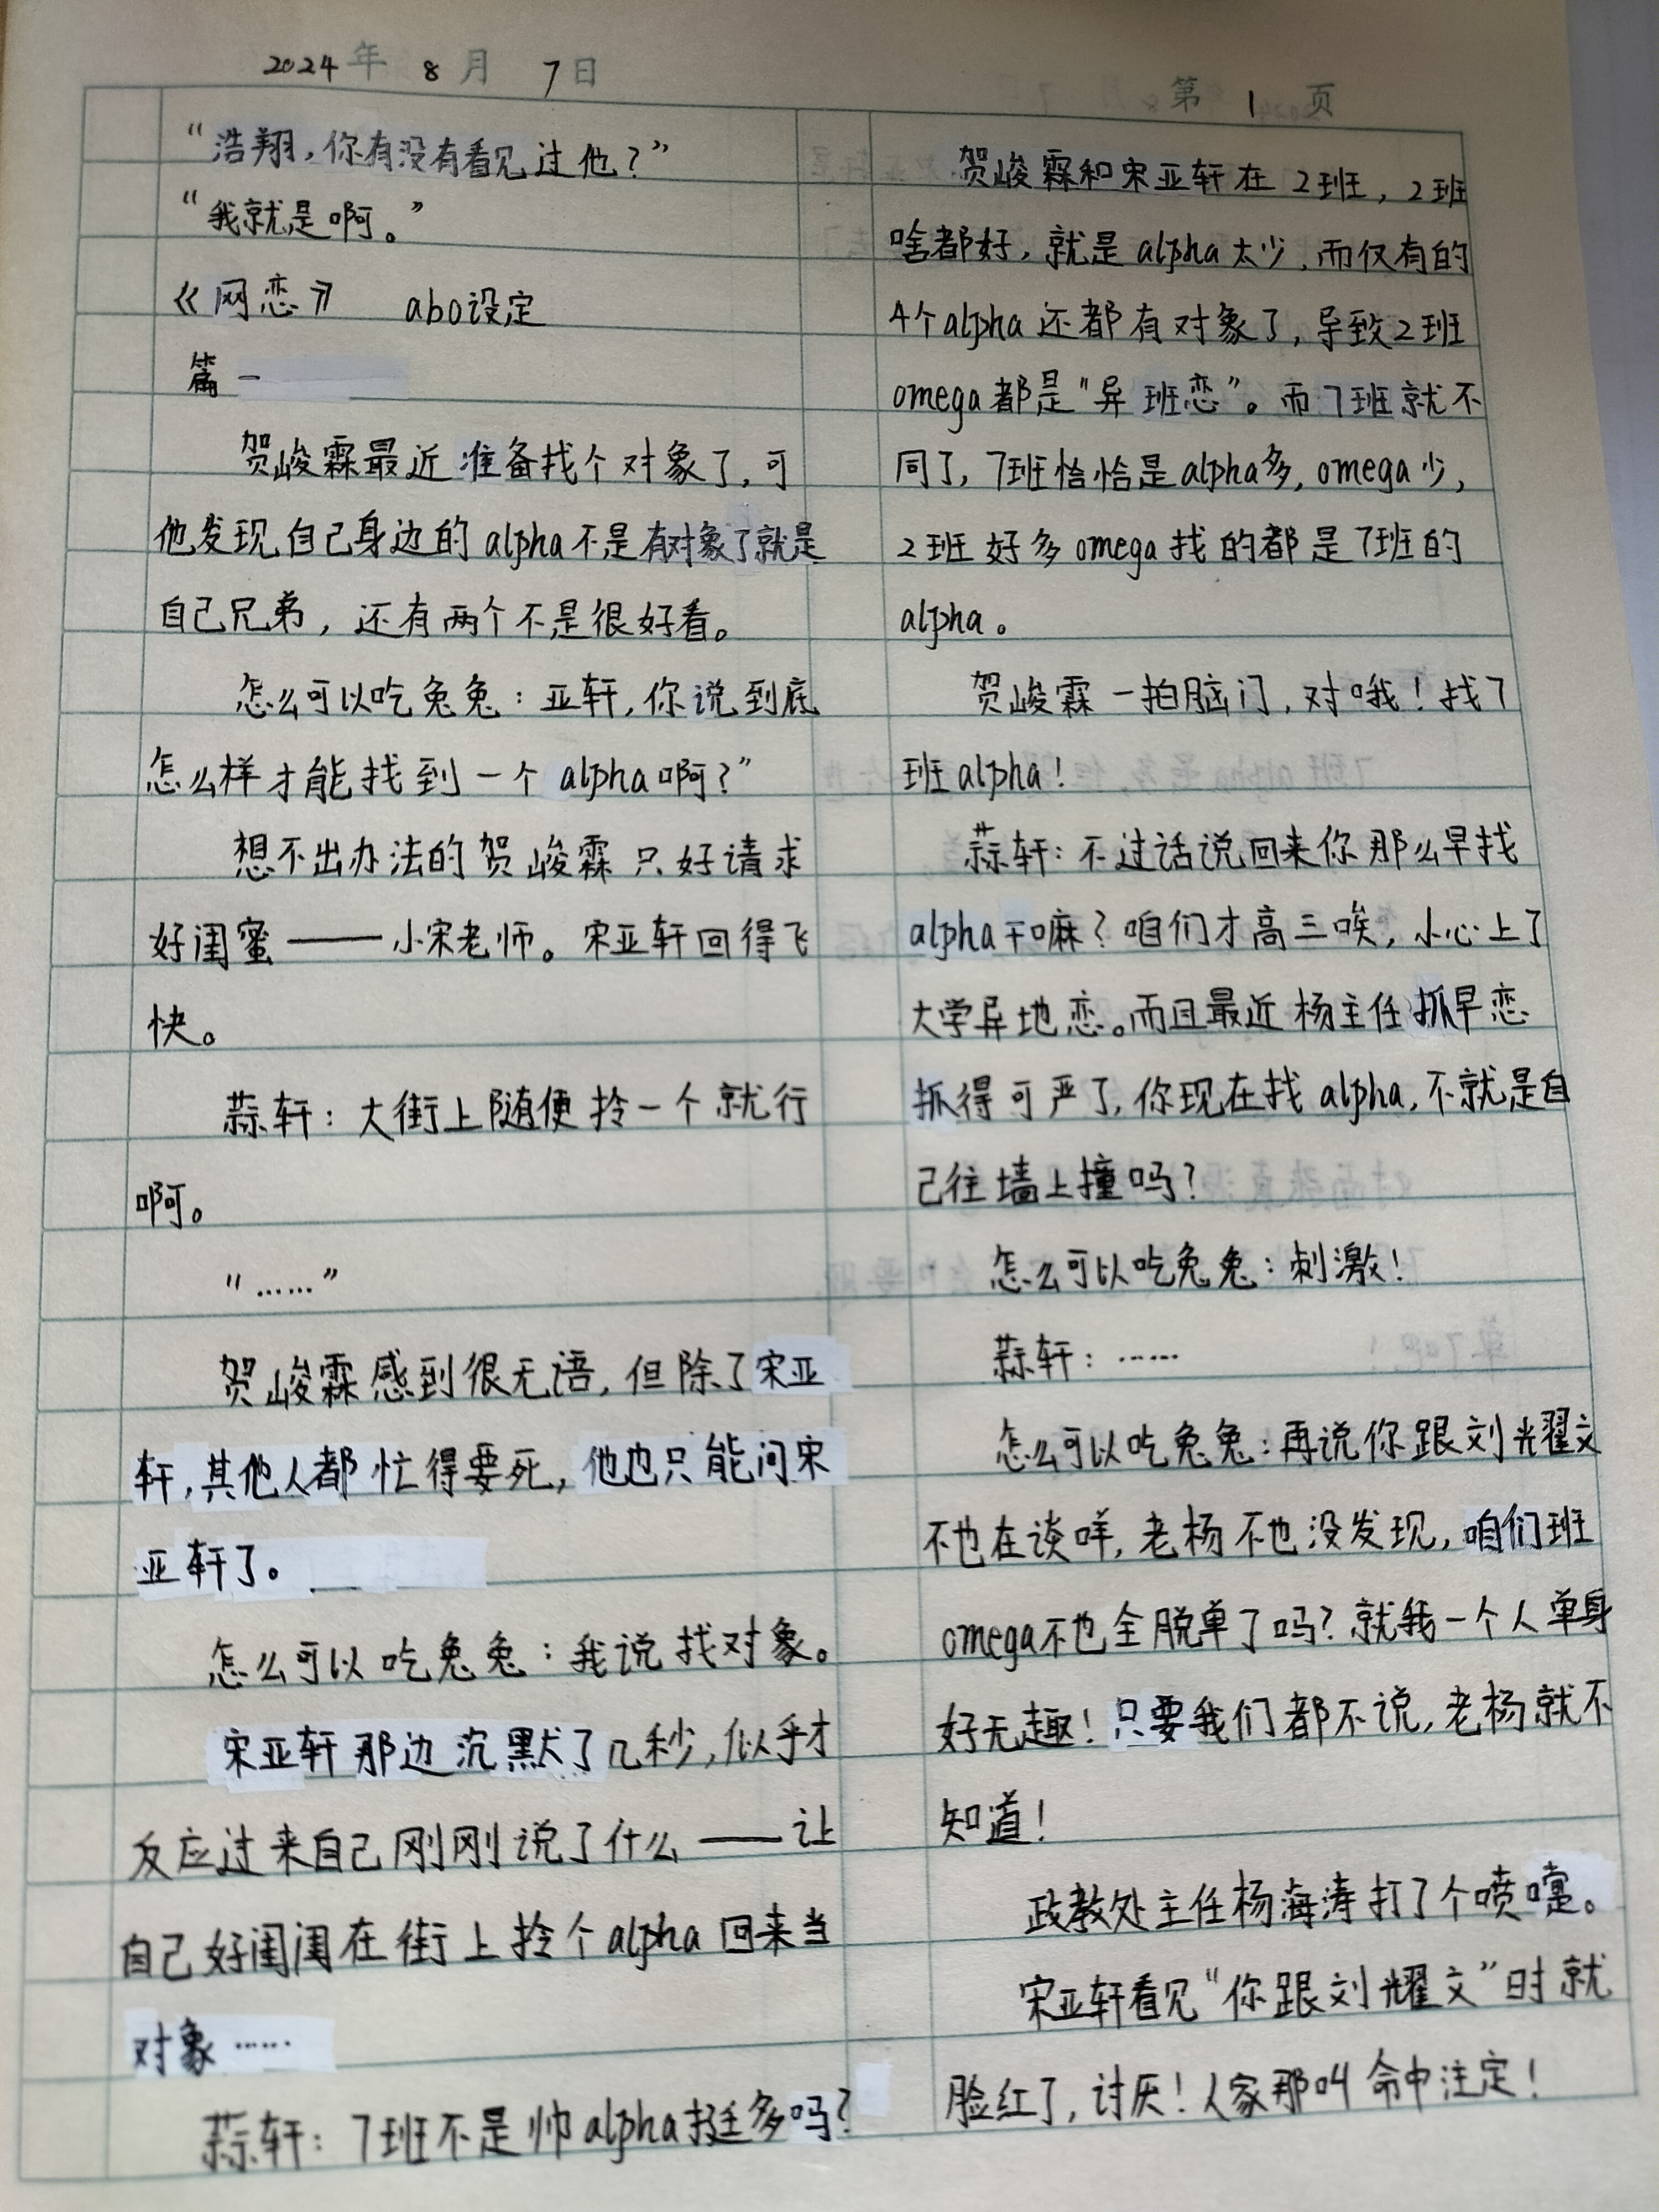 2024年 8月 7日
第 1 页
“浩翔,你有没有看见过他?”
“我就是啊。”
《网恋》 abo设定
篇一
贺峻霖最近准备找个对象了,可
他发现自己身边的alpha不是有对象了就是
自己兄弟,还有两个不是很好看。
怎么可以吃兔兔:亚轩,你说到底
怎么样才能找到一个alpha啊?”
想不出办法的贺峻霖只好请求
好闺蜜——小宋老师。宋亚轩回得飞
快。
蒜轩:大街上随便拎一个就行
啊。
“……”
贺峻霖感到很无语,但除了宋亚
轩,其他人都忙得要死,他也只能问宋
亚轩了。
怎么可以吃兔兔:我说找对象。
宋亚轩那边沉默了几秒,似乎才
反应过来自己刚刚说了什么——让
自己好闺闺在街上拎个alpha回来当
对象……
蒜轩:7班不是帅alpha挺多吗?
贺峻霖和宋亚轩在2班,2班
啥都好,就是alpha太少,而仅有的
4个alpha还都有对象了,导致2班
omega都是“异班恋”。而7班就不
同了,7班恰恰是alpha多,omega少,
2班好多omega找的都是7班的
alpha。
贺峻霖一拍脑门,对哦!找7
班alpha!
蒜轩:不过话说回来你那么早找
alpha干嘛?咱们才高三唉,小心上了
大学异地恋。而且最近杨主任抓早恋
抓得可严了,你现在找alpha,不就是自
己往墙上撞吗?
怎么可以吃兔兔:刺激!
蒜轩:……
怎么可以吃兔兔:再说你跟刘耀文
不也在谈咩,老杨不也没发现,咱们班
omega不也全脱单了吗?就我一个人单身
好无趣!只要我们都不说,老杨就不
知道!
政教处主任杨海涛打了个喷嚏。
宋亚轩看见“你跟刘耀文”时就
脸红了,讨厌!人家那叫命中注定!